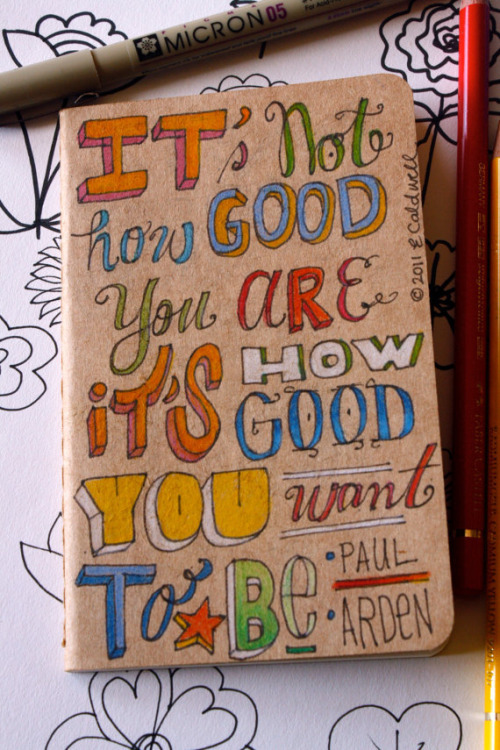 MICRON 05
IT's Not
how GOOD
You ARE
iT'S HOW
GOOD
YOU want
To BE
• PAUL
• ARDEN
© 2011 E Caldwell